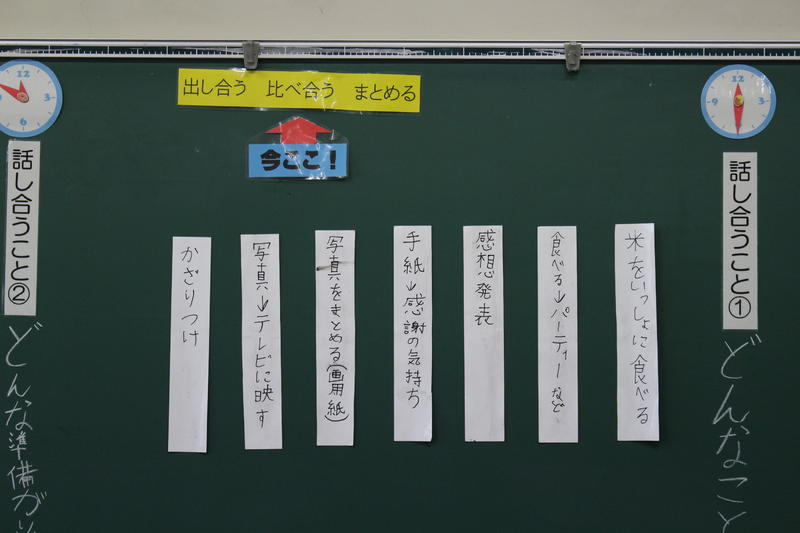 出し合う 比べ合う まとめる
今ここ!
話し合うこと①
どんなこと
米をいっしょに食べる
食べる→パーティーなど
感想発表
手紙→感謝の気持ち
写真をまとめる(画用紙)
写真→テレビに映す
かざりつけ
話し合うこと②
どんな準備が
12
3
6
12
3
9